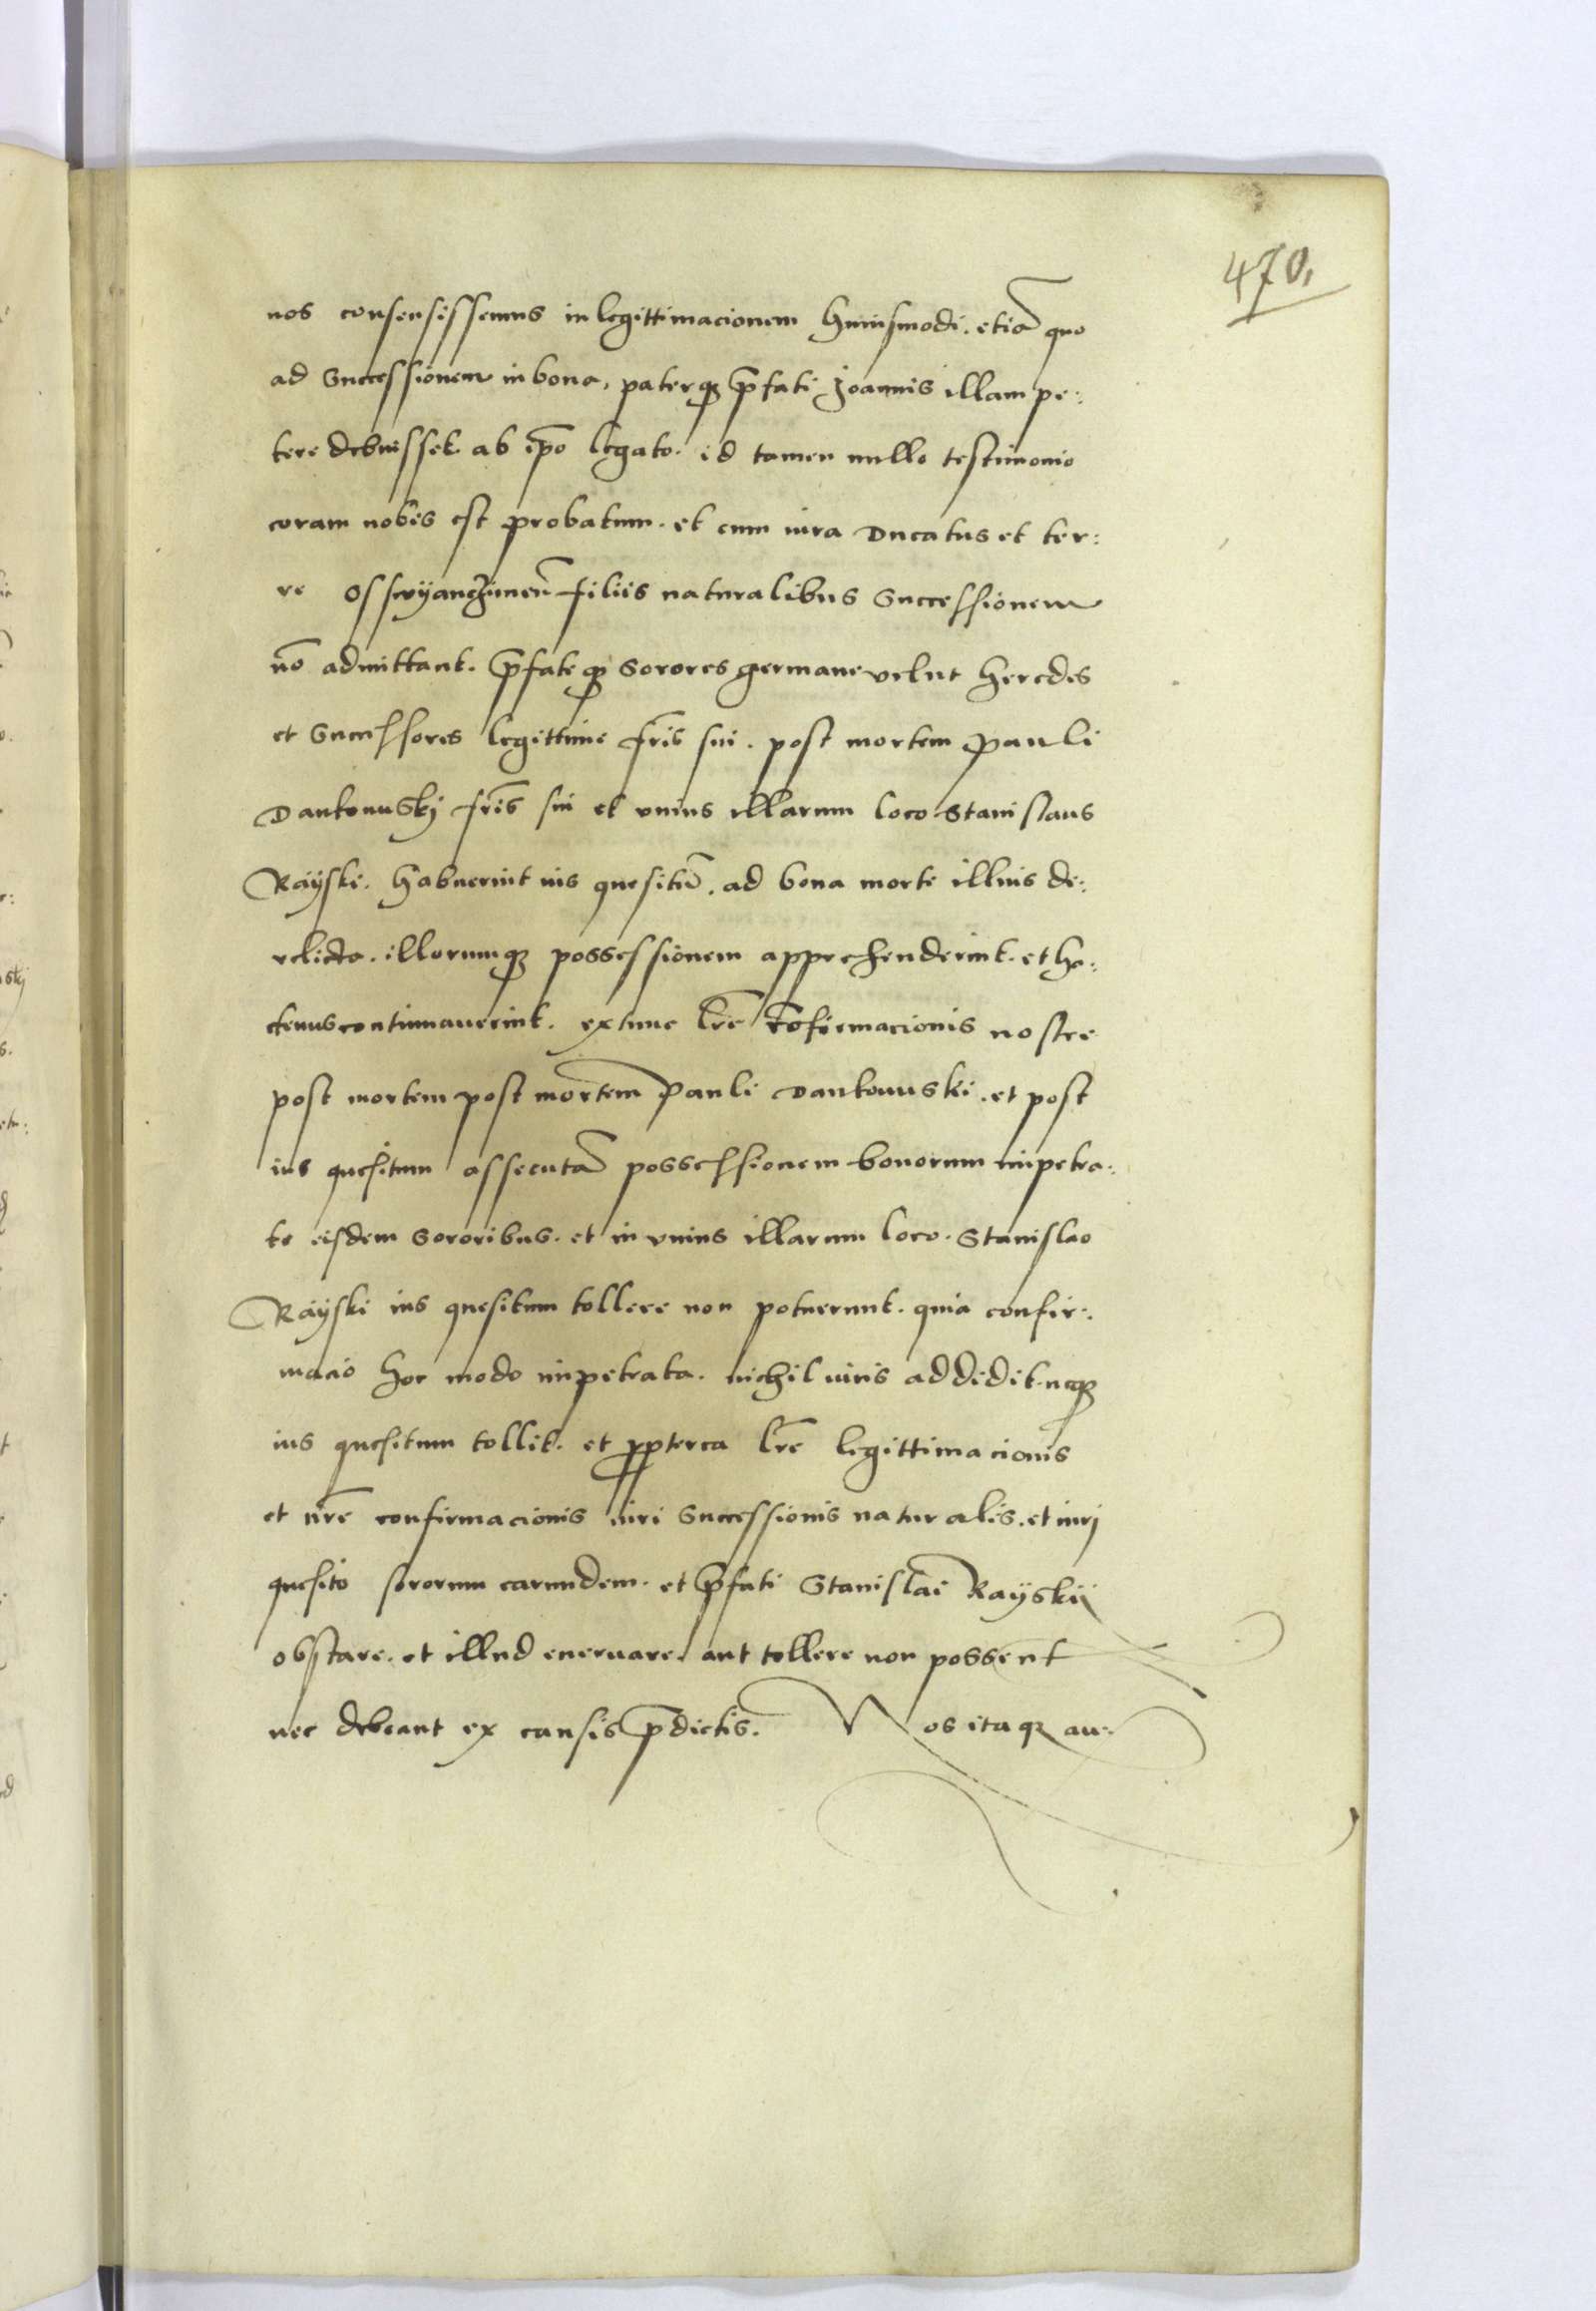 470.
nos consensissemus in legittimacionem huiusmodi. etiā quo
ad Successionem in bona, paterq₃ p̄fati Joannis illam pe:
tere debuisset ab ip̄o legato. id tamen nullo testimonio
coram nobis est probatum. et cum iura Ducatus et ter:
re Osswyanczimen̄ filiis naturalibus Successionem
nō admittant. p̄fateq₃ Sorores germane velut heredes
et Successores legittime fr̄is sui. post mortem Pauli
Dankowskj fr̄is sui et vnius illarum loco Stanislaus
Rayski. habuerint ius quesitū. ad bona morte illius de:
relicta. illorumq₃ possessionem apprehenderint. et ha:
ctenus continuauerint. extunc lr̄e cōfirmacionis nostre
post mortem post mortem Pauli Dankowski. et post
ius quesitum assecutā possessionem bonorum impetra:
te eisdem Sororibus. et in vnius illarum loco. Stanislao
Rayski ius quesitum tollere non potuerunt. quia confir:
macio hoc modo impetrata. nichil iuris addidit. neq₃
ius quesitum tollit. et ꝓpterea lr̄e legittimacionis
et nr̄e confirmacionis iuri Successionis naturalis. et iurj
quesito sororum earundem. et p̄fati Stanislai Rayskij
obstare. et illud eneruare. aut tollere non possent
nec debeant ex causis p̄dictis. Nos itaq₃ au: